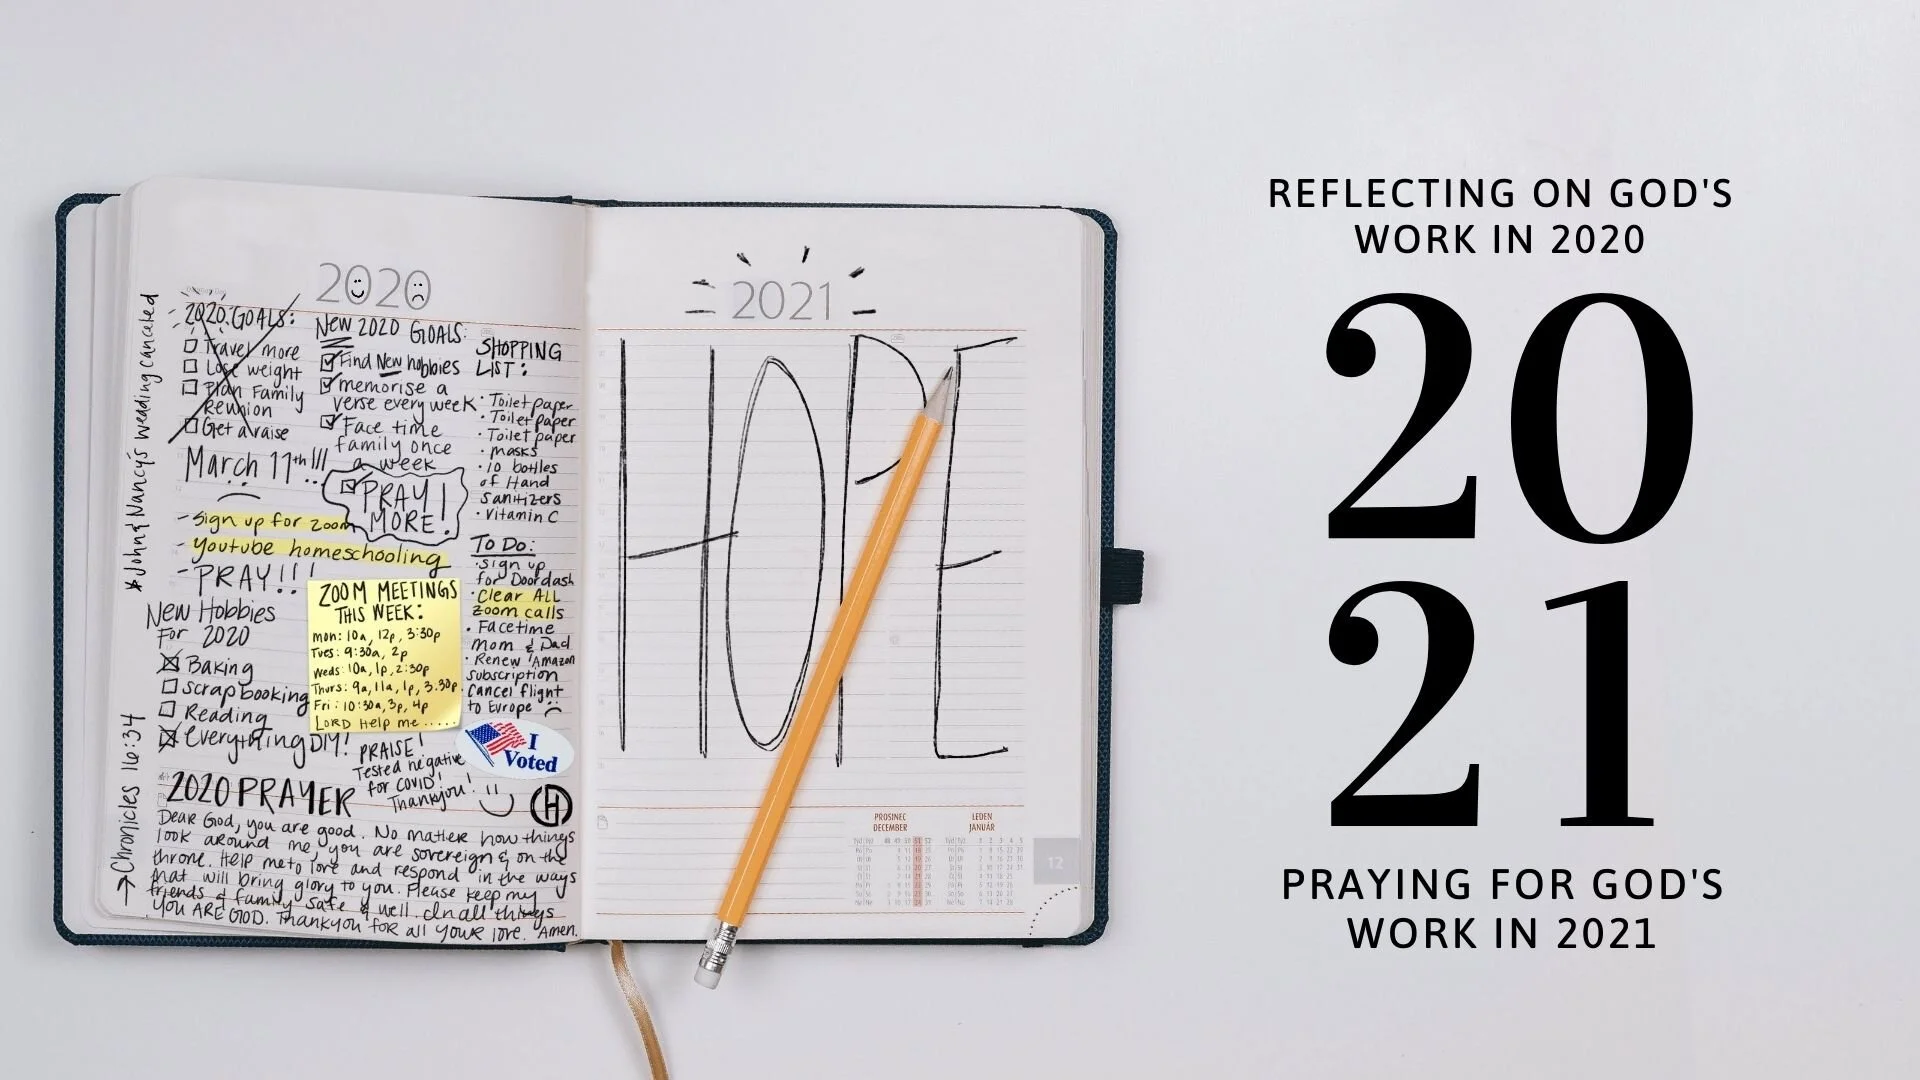 2020
2020 GOALS:
Travel more
Lose weight
Plan Family
Reunion
Get a raise
March 11th!!!
- Sign up for zoom
- Youtube homeschooling
- PRAY!!!
New 2020 GOALS:
Find New hobbies
memorise a
verse every week
Face time
family once
a week
PRAY!
MORE!
SHOPPING
LIST:
• Toilet paper
• Toilet paper
• Toilet paper
• masks
• 10 bottles
of Hand
sanitizers
• Vitamin C
TO DO:
• sign up
for Doordash
• Clear ALL
zoom calls
• Facetime
Mom & Dad
• Renew Amazon
subscription
• cancel flight
to Europe
*John & Nancy's wedding canceled
New Hobbies
For 2020
Baking
scrapbooking
Reading
Everything DIY!
ZOOM MEETINGS
THIS WEEK:
Mon: 10a, 12p, 3:30p
Tues: 9:30a, 2p
Weds: 10a, 1p, 2:30p
Thurs: 9a, 11a, 1p, 3:30p
Fri: 10:30a, 3p, 4p
LORD Help me.....
I
Voted
PRAISE!
Tested negative
for COVID!
Thankyou!
→ Chronicles 16:34
2020 PRAYER
Dear God, you are good. No matter how things
look around me, you are sovereign & on the
throne. Help me to love and respond in the ways
that will bring glory to you. Please keep my
friends & family safe & well. In all things
YOU ARE GOD. Thankyou for all your love. Amen.
2021
HOPE
PROSINEC
DECEMBER
LEDEN
JANUAR
12
REFLECTING ON GOD'S
WORK IN 2020
20
21
PRAYING FOR GOD'S
WORK IN 2021